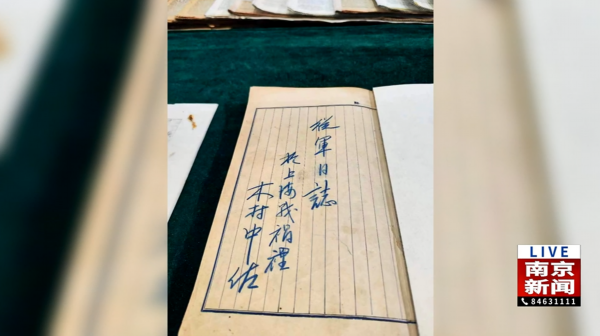 從軍日誌
於上海戦禍裡
木村中佐
LIVE
南京
新闻
84631111